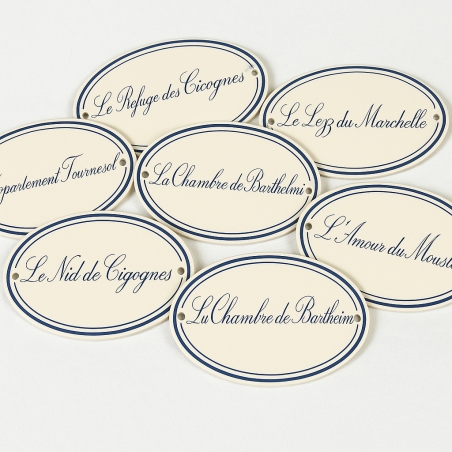 Le Refuge des Cicognes
Le Lezz du Marchelle
Appartement Tournesol
La Chambre de Barthelmi
L'Amour du
Le Nid de Cigognes
Lu Chambre de Bartheim